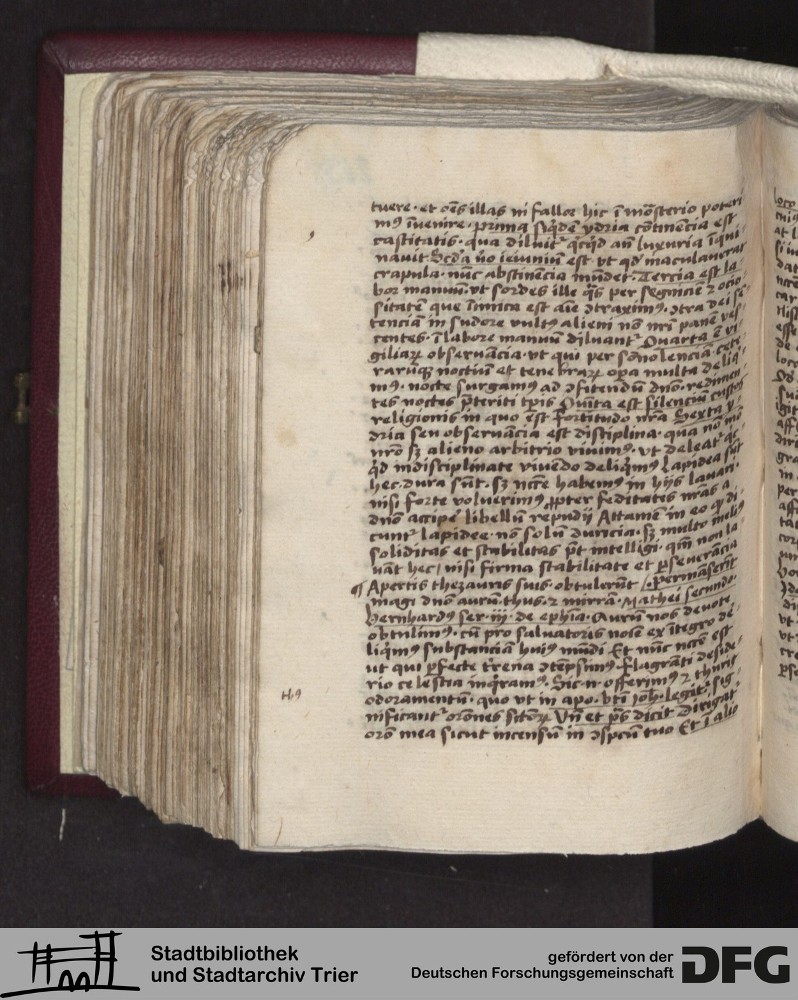 tuere · et oẽs illas ni fallor hic ĩ mõsterio poteri
mꝰ ĩuenire · prima siqͥdẽ ydria cõtinẽcia est
castitatis · qua diluitᷣ qͥcqͥd an̄ luxuria ĩqui
nauit Scd̃a ũo ieiuniũ est vt qd̃ maculauerat
crapula · nũc abstinẽcia mũdet · Tercia est la
bor manuũ · vt sordes ille q̃s per segniciẽ ⁊ ocio
sitatẽ que ĩimica est aĩe ↄtraximꝰ · ↄtra dei sẽ
tenciã in sudore vultꝰ alieni nõ nr̃i panẽ ves
centes · ĩ labore manuũ diluantᷣ Quarta ẽ vi
giliaꝝ obseruãcia · vt qui per sõnolenciã cete
rarũqꝫ noctiũ et tenebraꝝ oꝑa multa deliqͥ
mꝰ · nocte surgamꝰ ad ↄfitendũ dño · redimen
tes noctes p̃teriti tp̃is Quĩta est silenciũ custos
religionis in quo est fortitudo nr̃a Sexta y
dria seu obseruãcia est disciplina · qua nõ nõ
nr̃o sꝫ alieno arbitrio viuimꝰ · vt deleatᷣ qͥc
qͥd indisciplinate viuẽdo deliqͥmꝰ lapidea sũt
hec · dura sũt · sꝫ nccẽ habemꝰ in hijs lauari ·
nisi forte voluerimꝰ ꝓpter feditates nr̃as a
dño acciꝑe libellũ repudij Attamẽ in eo qͥ di
cuntᷣ lapidee · nõ solũ duricia · sꝫ multo meliꝰ
soliditas et stabilitas põt intelligi · qm̃ non la
uãt hec / nisi firma stabilitate et ꝑseuerãcia
¶ Apertis thezauris suis · obtulerũt / · permãserĩt
magi dño aurũ · thus · ⁊ mirrã · Mathei secundo ·
Bernhardꝰ ser · iij · de eph̃ia · Aurũ nos deuote
obtulimꝰ · cũ pro saluatoris noĩe ex ĩtegro de
liqͥmꝰ substanciã huiꝰ mũdi Et nũc nccẽ est
ut qui ꝑfecte t̃rena ↄtẽpsimꝰ · flagrãti deside
rio celestia inqͥramꝰ · Sic · n · offerimꝰ ⁊ thuris
odoramentũ · quo vt in apo · btĩ ioh̃ · legit᷑ · sig
nificantᷣ orõnes sctõꝝ Vñ et p̃s dicit Dirigat᷑
orõ mea sicut incensũ in ↄspcũ tuo Et ĩ alio
Stadtbibliothek
und Stadtarchiv Trier
gefördert von der
Deutschen Forschungsgemeinschaft
DFG